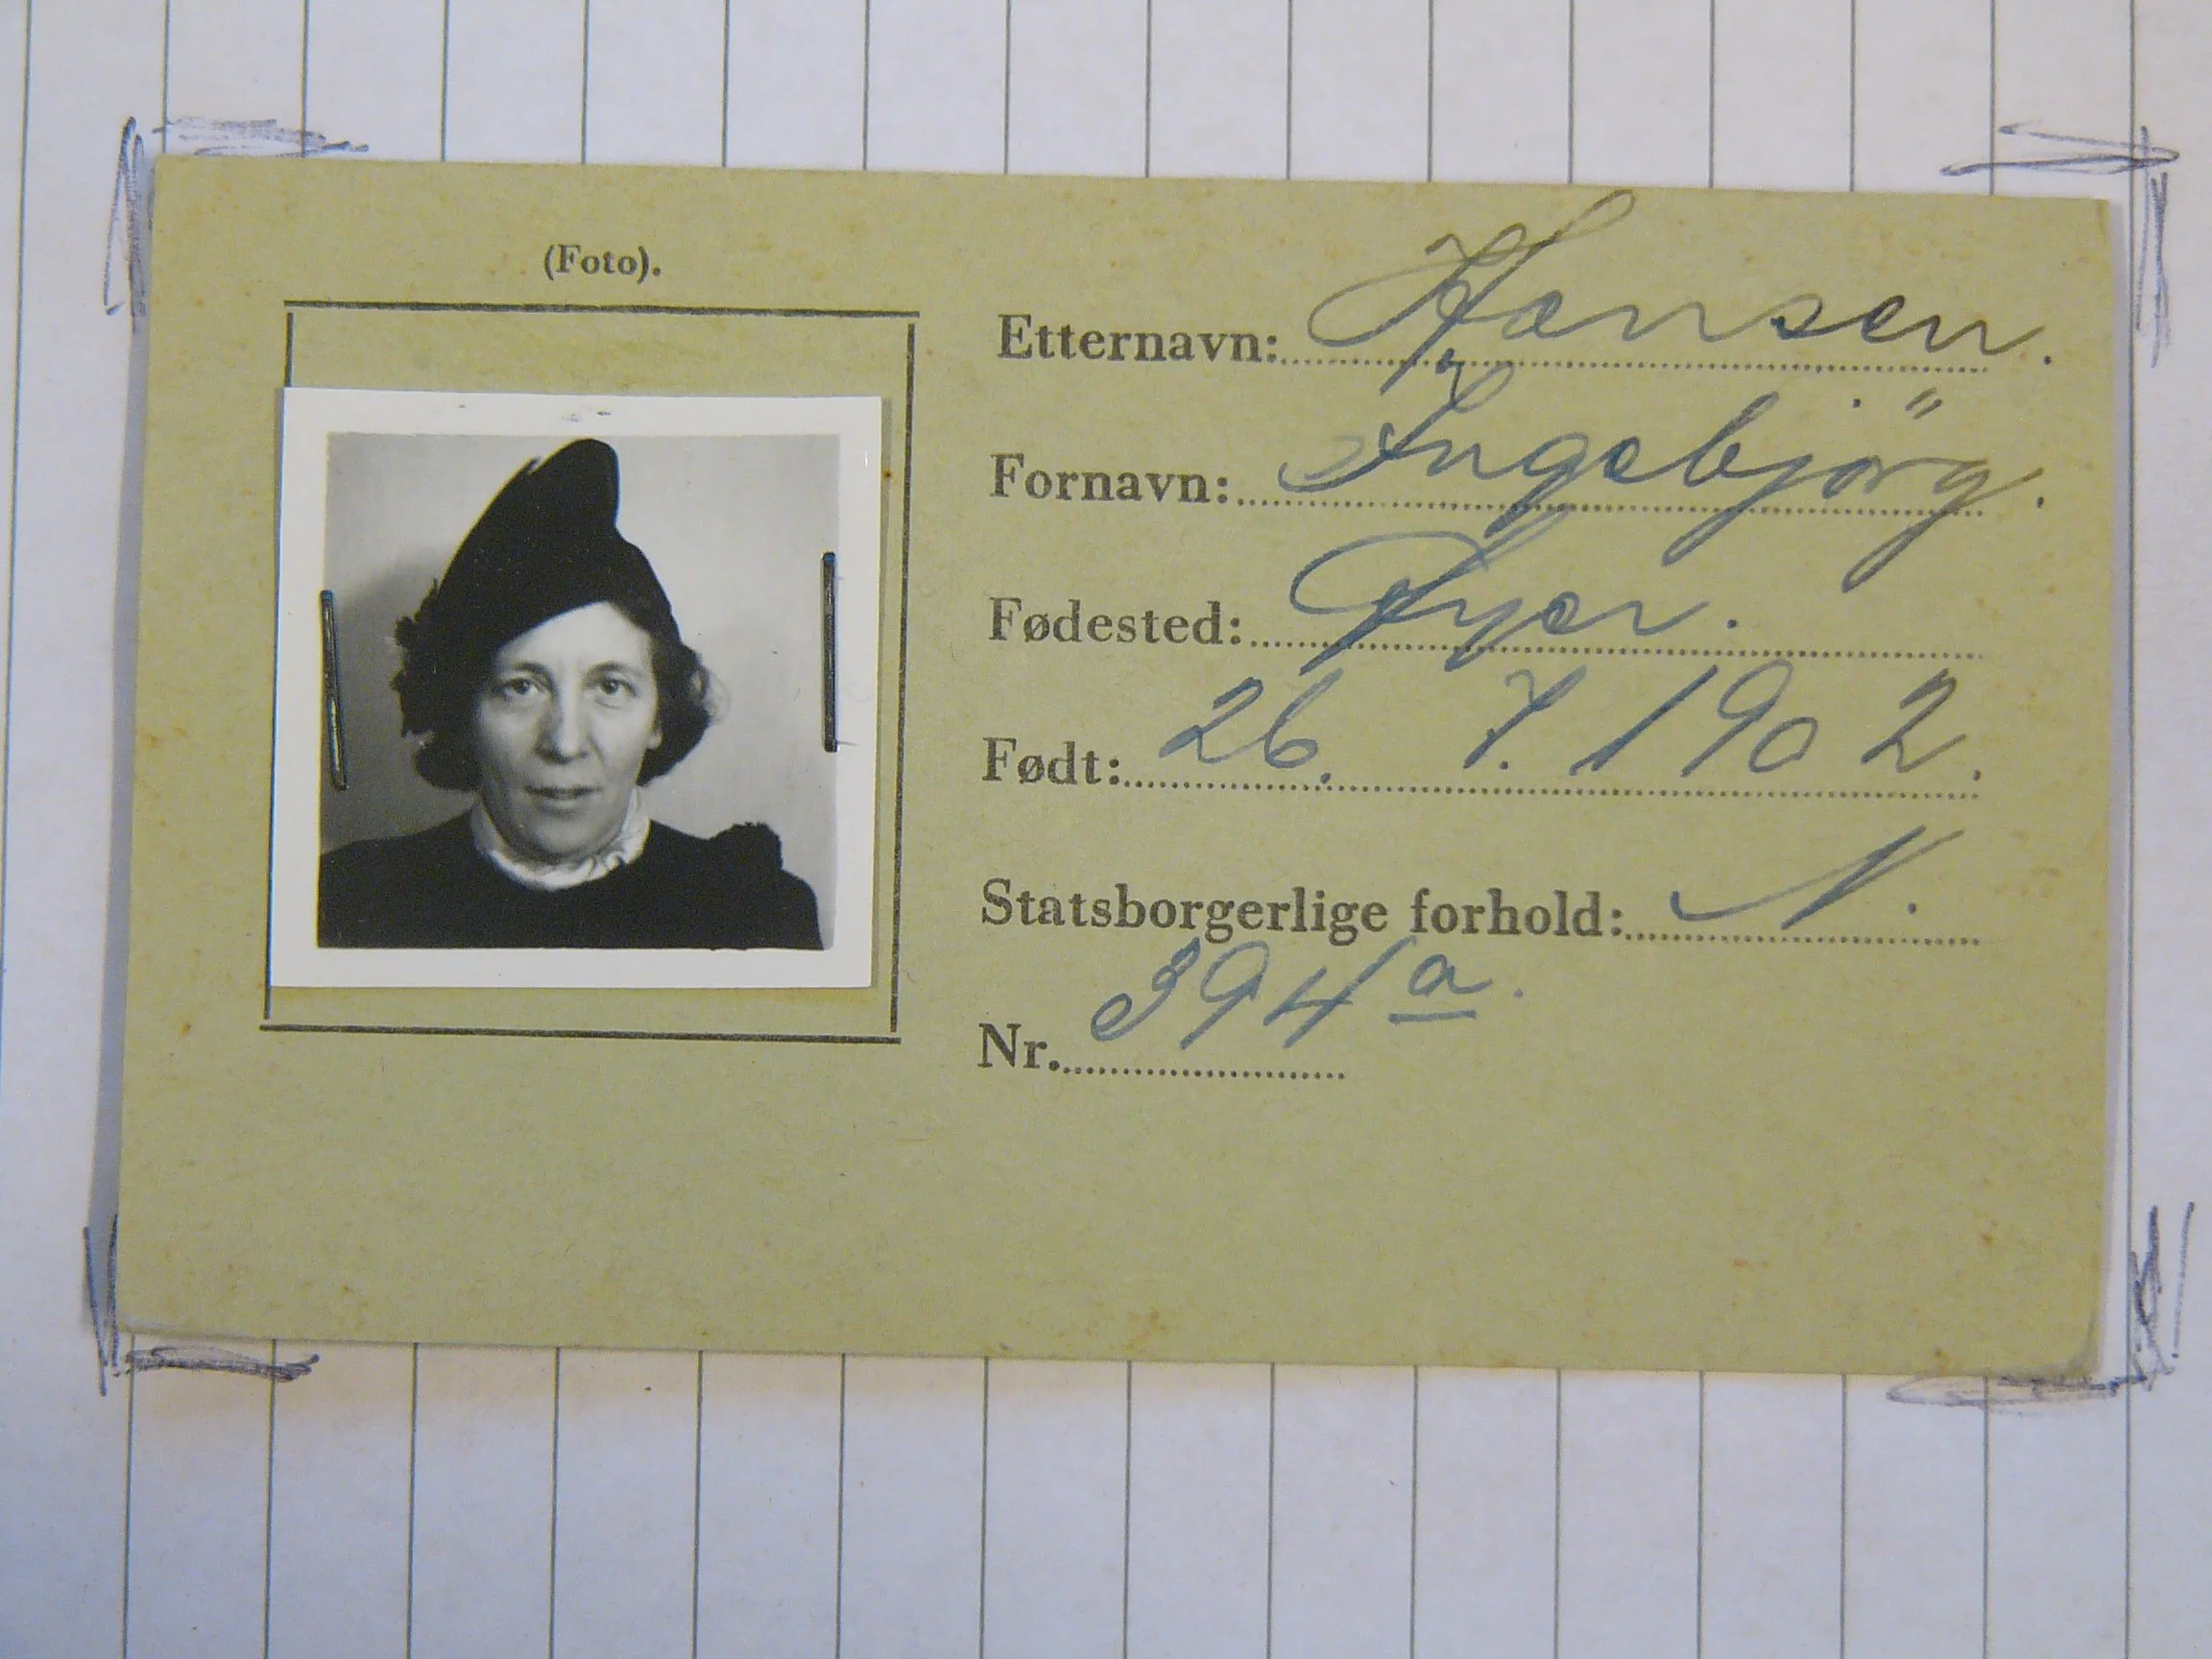 (Foto).
Etternavn: Hansen.
Fornavn: Ingebjörg.
Fødested: Øyer.
Født: 26. 7. 1902.
Statsborgerlige forhold: N.
Nr. 394a.